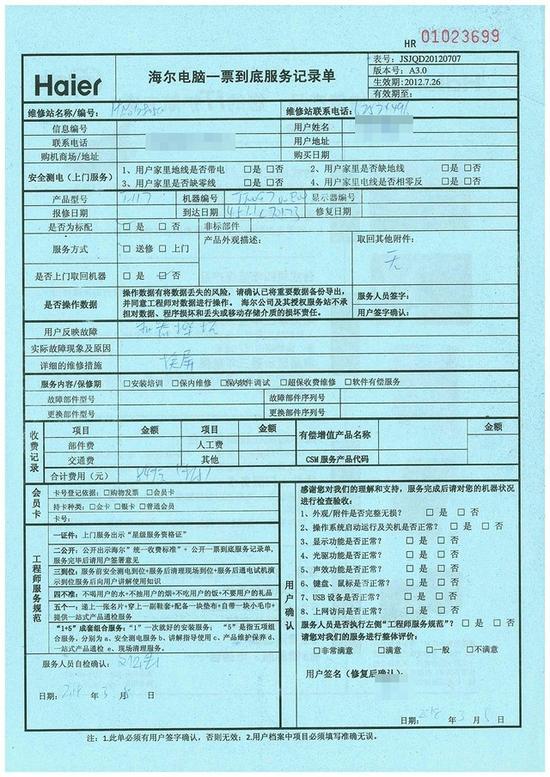 HR 01023699
Haier
海尔电脑一票到底服务记录单
表号：JSJQD20120707
版本号：A3.0
生效日期：2012.7.26
有效期至：
维修站名称/编号：
维修站联系电话：
信息编号
用户姓名
联系电话
用户地址
购机商场/地址
购买日期
安全测电（上门服务）
1、用户家里地线是否带电 □是 □否
2、用户家里是否缺地线 □是 □否
3、用户家里是否缺零线 □是 □否
4、用户家里电线是否相零反 □是 □否
产品型号
机器编号
显示器编号
报修日期
到达日期
修复日期
是否为标配 □是 □否
非标部件
服务方式 □送修 □上门
产品外观描述：
取回其他附件：
无
是否上门取回机器 □是 □否
是否操作数据
操作数据有将数据丢失的风险，请确认已将重要数据备份导出，
并同意工程师对数据进行操作。海尔公司及其授权服务站不承
担对数据、程序损坏和丢失或移动存储介质的损坏责任。
服务人员签字：
用户确认签字：
用户反映故障
实际故障现象及原因
详细的维修措施
换屏
服务内容/保修期 □安装培训 □保内维修 □保内软件调试 □超保收费维修 □软件有偿服务
故障部件型号
故障部件序列号
更换部件型号
更换部件序列号
收费记录
项目 金额 项目 金额
有偿增值产品名称
部件费 人工费
交通费 其他
CSM服务产品代码
合计费用（元）
会员卡
卡号登记依据：□购物发票 □会员卡
持卡种类：□金卡 □银卡 □普通会员
卡号：
工程师服务规范
一证件：上门服务出示“星级服务资格证”
二公开：公开出示海尔“统一收费标准”+ 公开一票到底服务记录单，
服务完毕后请用户签署意见
三到位：服务前安全测电到位+服务后清理现场到位+服务后通电试机演
示到位服务后向用户讲解使用知识
四不准：不喝用户的水+不抽用户的烟+不吃用户的饭+不要用户的礼品
五个一：递上一张名片+穿上一副鞋套+配备一块垫布+自带一块小毛巾+
提供一站式产品通检服务
“1+5”成套组合服务：“1”一次就好的安装服务；“5”是指五项组
合服务，分别为 a、安全测电服务 b、讲解指导使用 c、产品维护保养 d、
一站式产品通检 e、现场清理服务。
服务人员自检确认：
日期： 年 3月 日
用户确认
感谢您对我们的理解和支持，服务完成后请对您的机器状况
进行检查验收：
1、外观/附件是否完整无损？ □ 是 □ 否
2、操作系统启动运行及关机是否正常？ □ 是 □ 否
3、显示功能是否正常？ □ 是 □ 否
4、光驱功能是否正常？ □ 是 □ 否
5、声效功能是否正常？ □ 是 □ 否
6、键盘、鼠标是否正常？ □ 是 □ 否
7、USB 设备是否正常？ □ 是 □ 否
8、上网访问是否正常？ □ 是 □ 否
服务人员是否执行左侧“工程师服务规范”？ □是 □ 否
请您对我们的服务进行整体评价：
□非常满意 □满意 □一般 □不满意
用户签名（修复后确认）：
日期： 年 3月 5日
注：1.此单必须有用户签字确认，否则无效；2.用户档案中项目必须填写准确无误。